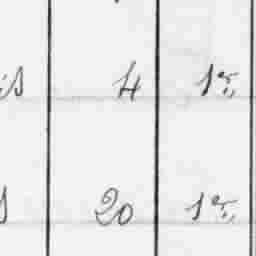 is 4 1er
s 20 1er